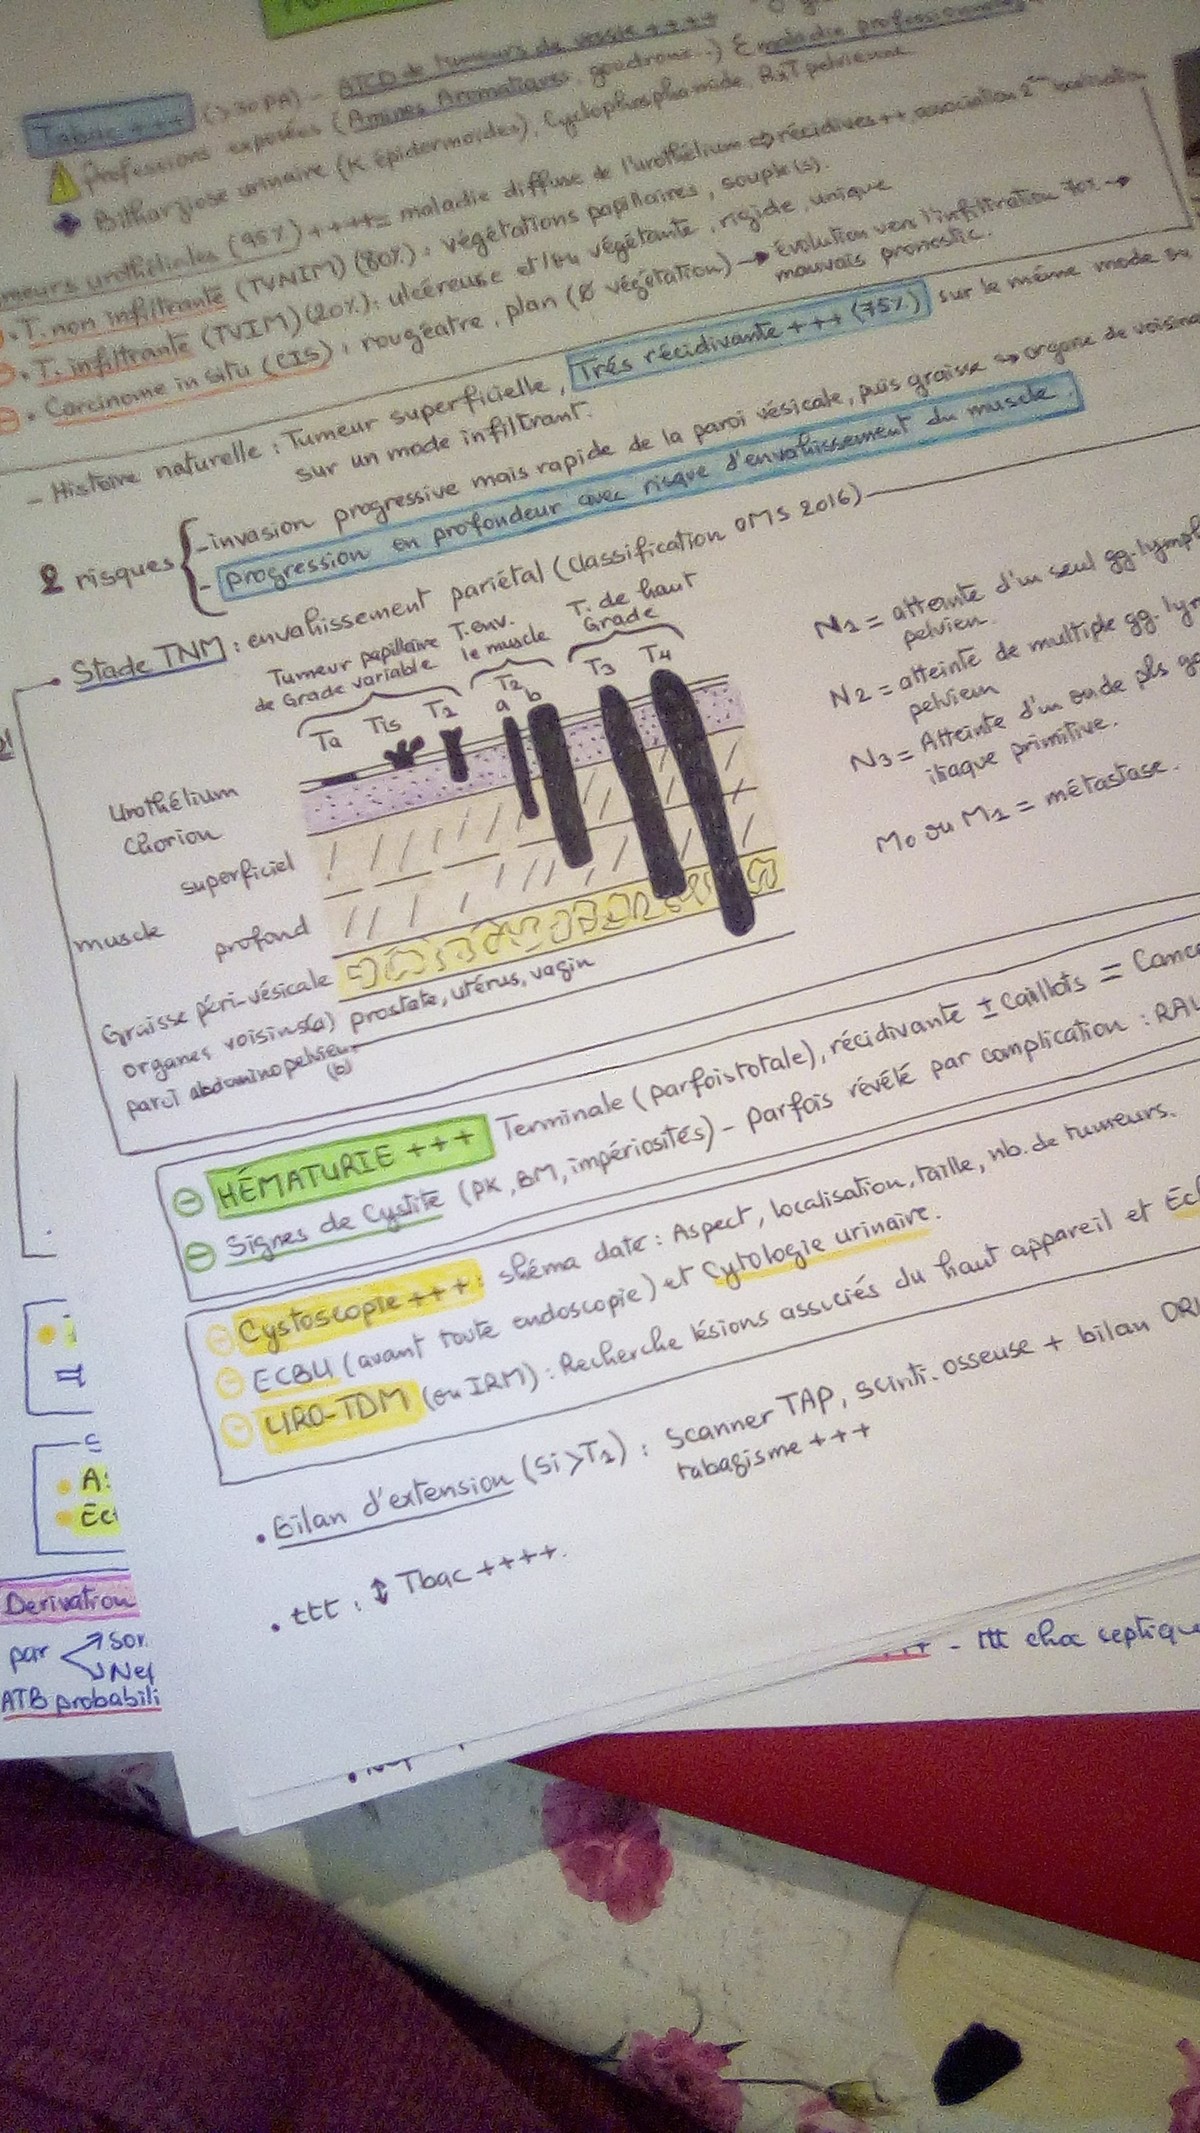 Tabac +++ (>30 PA) - ATCD de tumeurs de vessie ++++
Professions exposées (Amines Aromatiques, goudrons..) maladie professionnelle
Bilharziose urinaire (K épidermoides), Cyclophosphamide, RxT pelvienne
meurs urothéliales (95%) ++++= maladie diffuse de l'urothélium ⇒ récidives ++ association 2
• T. non infiltrante (TVNIM) (80%) : végétations papillaires, souple(s).
• T. infiltrante (TVIM) (20%) : ulcéreuse et/ou végétante, rigide, unique
• Carcinome in situ (CIS) : rougeatre, plan (Ø végétation) → évolution vers l'infiltration 70% →
mauvais pronostic.
- Histoire naturelle : Tumeur superficielle, Très récidivante +++ (75%) sur le même mode ou
sur un mode infiltrant.
2 risques
- invasion progressive mais rapide de la paroi vésicale, puis graisse → organe de voisina
- progression en profondeur avec risque d'envahissement du muscle.
• Stade TNM : envahissement pariétal (Classification OMS 2016)
Tumeur papillaire de Grade variable
T. env. le muscle
T. de haut Grade
Ta Tis T1 T2 a b T3 T4
Urothélium
Chorion
superficiel
muscle
profond
Graisse péri-vésicale
organes voisins(a) prostate, utérus, vagin
paroi abdominopelvien
(b)
N1 = atteinte d'un seul gg. lymph
pelvien.
N2 = atteinte de multiple gg. lym
pelvien
N3 = Atteinte d'un ou de pls ga
iliaque primitive.
M0 ou M1 = métastase.
⊖ HÉMATURIE +++ Terminale (parfois totale), récidivante ± Caillots = Cance
⊖ Signes de Cystite (PK, BM, impériosités) - parfois révélé par complication : RAU
⊖ Cystoscopie +++ : shéma daté : Aspect, localisation, taille, nb. de tumeurs.
⊖ ECBU (avant toute endoscopie) et Cytologie urinaire.
⊖ URO-TDM (ou IRM) : Recherche lésions associés du haut appareil et Ech
• Bilan d'extension (Si >T1) : Scanner TAP, Scinti. osseuse + bilan ORL
tabagisme +++
• ttt : ↕ Tbac ++++.
A:
Ec
Derivation
par
Sor
Nep
ATB probabili
- ttt choc septique